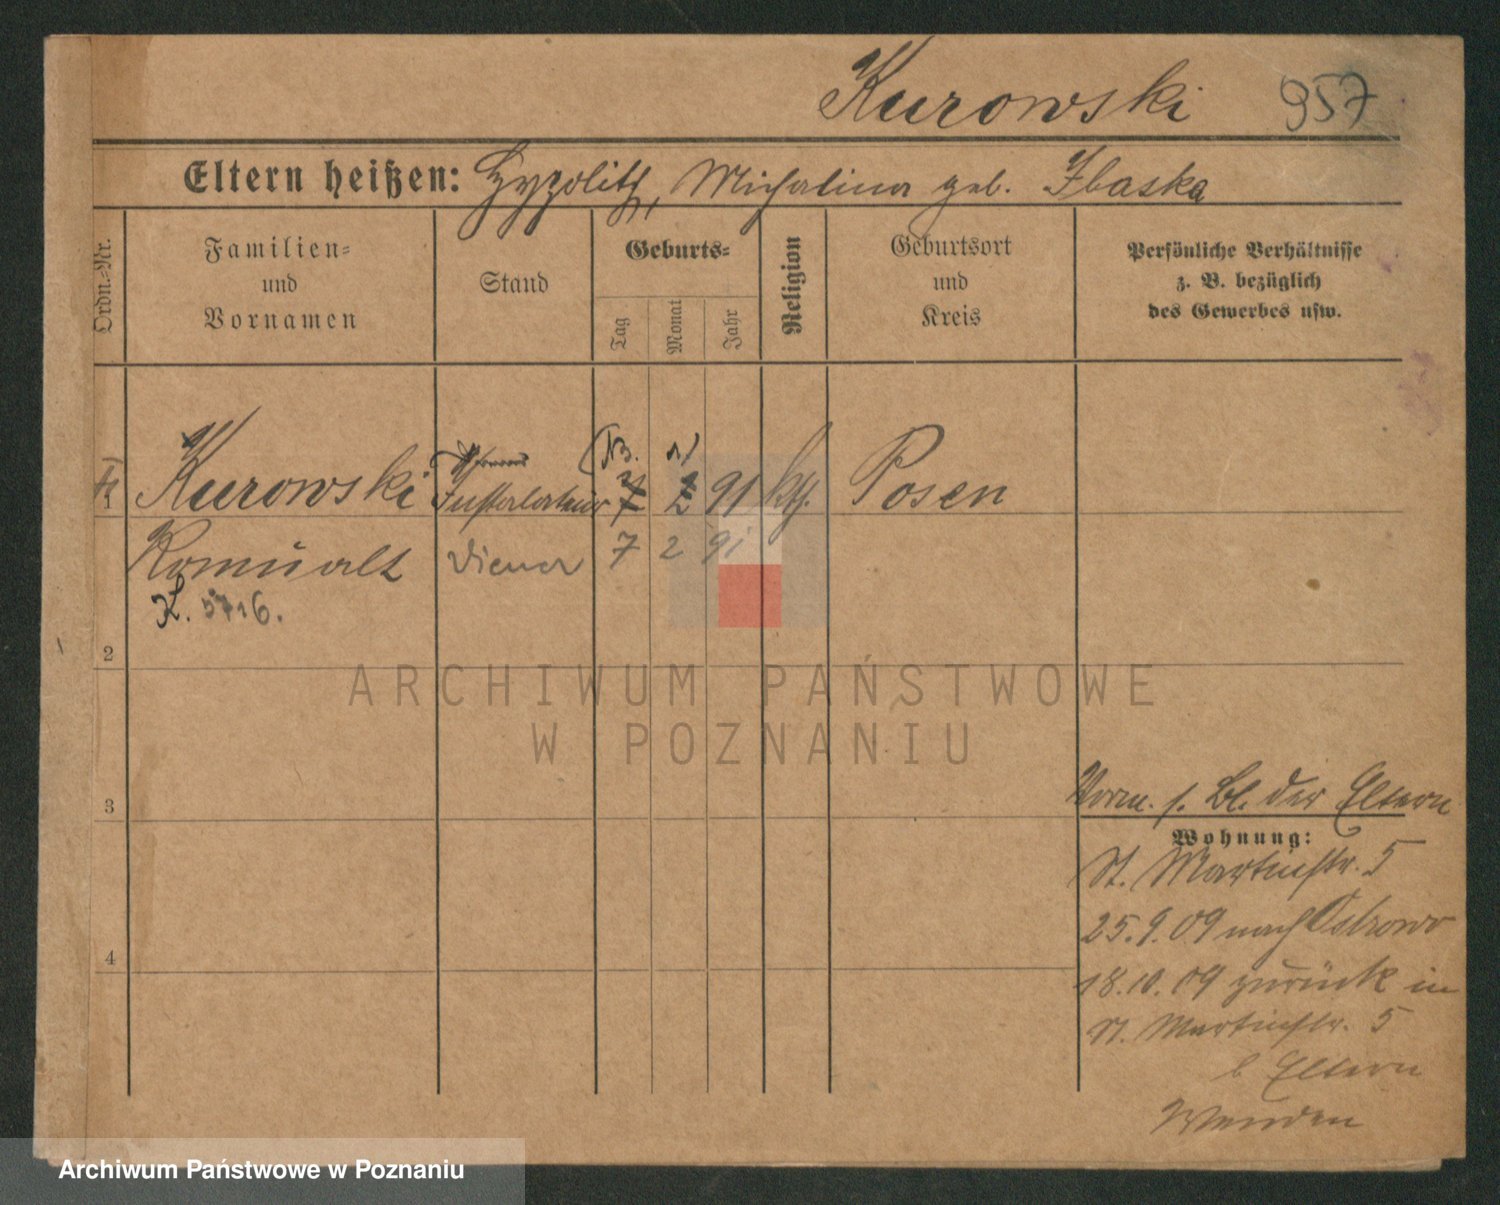 Kurowski 957
Eltern heißen: Hypolith, Michalina geb. Ilaska
Ordn.-Nr.
Familien-
und
Vornamen
Stand
Geburts-
Tag
Monat
Jahr
Religion
Geburtsort
und
Kreis
Persönliche Verhältnisse
z. B. bezüglich
des Gewerbes usw.
1 Kurowski Installateur 7 2 91 kth. Posen
Romualt Diener 7 2 91
K. 5716.
2
ARCHIWUM PAŃSTWOWE
W POZNANIU
3
Vorm. s. Bl. der Eltern
Wohnung:
St. Martinstr. 5
25.9.09 nach Ostrowo
4
18.10.09 zurück in
St. Martinstr. 5
b Eltern
Wenden
Archiwum Państwowe w Poznaniu